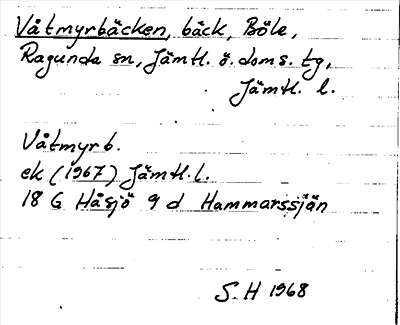 Våtmyrbäcken, bäck, Böle,
Ragunda sn, Jämtl. ö. doms. tg,
Jämtl. l.
Våtmyrb.
ek (1967) Jämtl. l.
18 G Håsjö 9 d Hammarssjän
S. H 1968